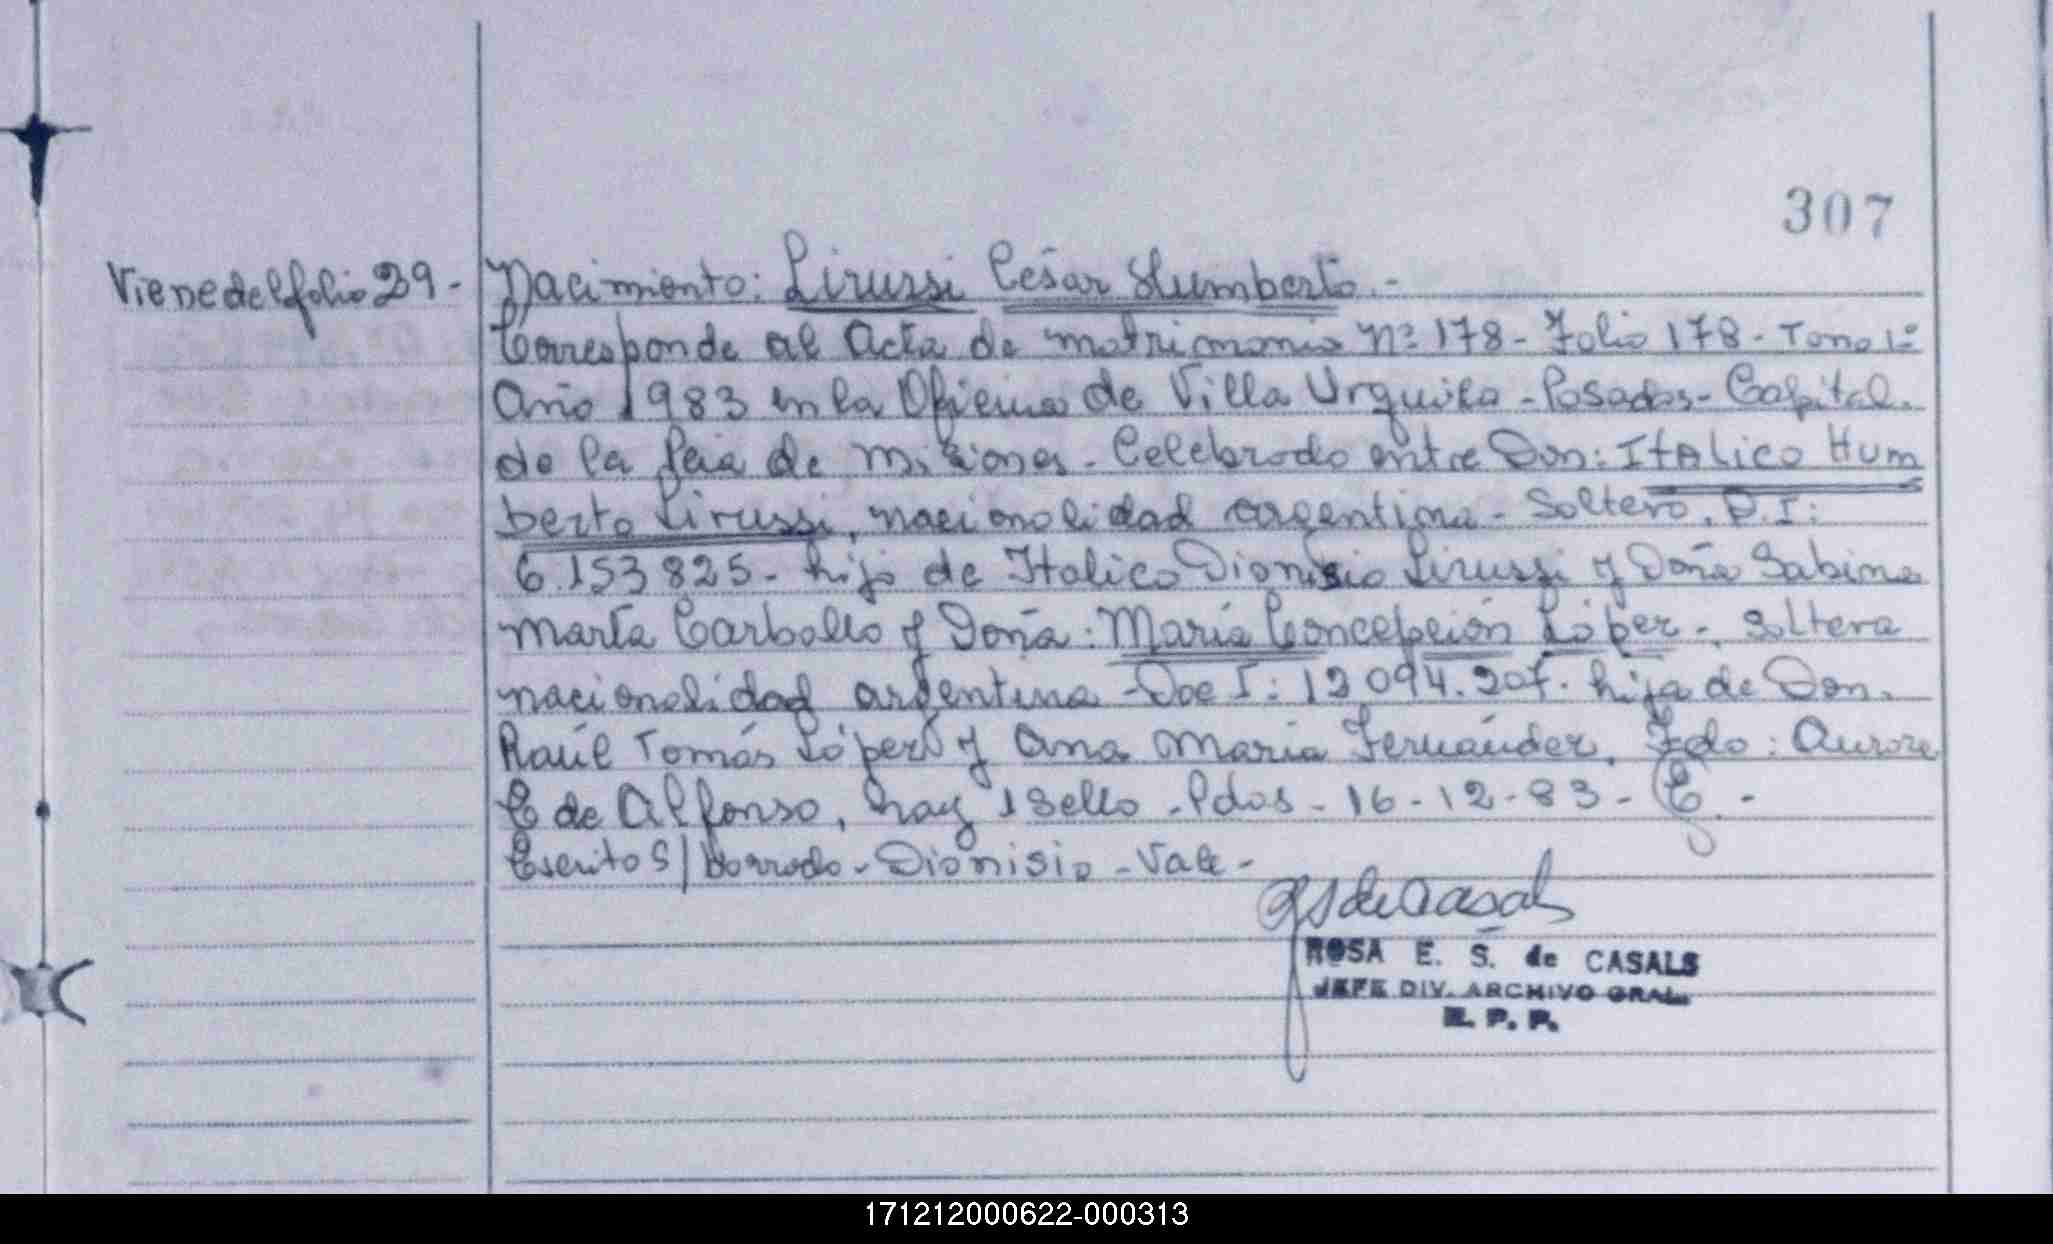 307
Viene del folio 29.- Nacimiento: Lirussi César Humberto.-
Corresponde al Acta de matrimonio Nº 178- Folio 178- Tomo 1º
Año 1983 en la Oficina de Villa Urquiza - Posadas- Capital.
de la Pcia de Misiones. Celebrado entre Don: Italico Hum
berto Lirussi, nacionalidad argentina - Soltero. D.I:
6.153825- hijo de Italico Dionisio Lirussi y Doña Sabina
Marta Carballo y Doña: María Concepción López - Soltera
nacionalidad argentina - Doc I: 12094.207. hija de Don.
Raúl Tomás López y Ana María Fernández. Fdo: Aurora
E de Alfonso, hay 1 Sello - Pdas - 16-12-83-
Escrito S/borrado - Dionisio - Vale -
ROSA E. S. de CASALS
JEFE DIV. ARCHIVO GRAL.
R. P. P.
171212000622-000313